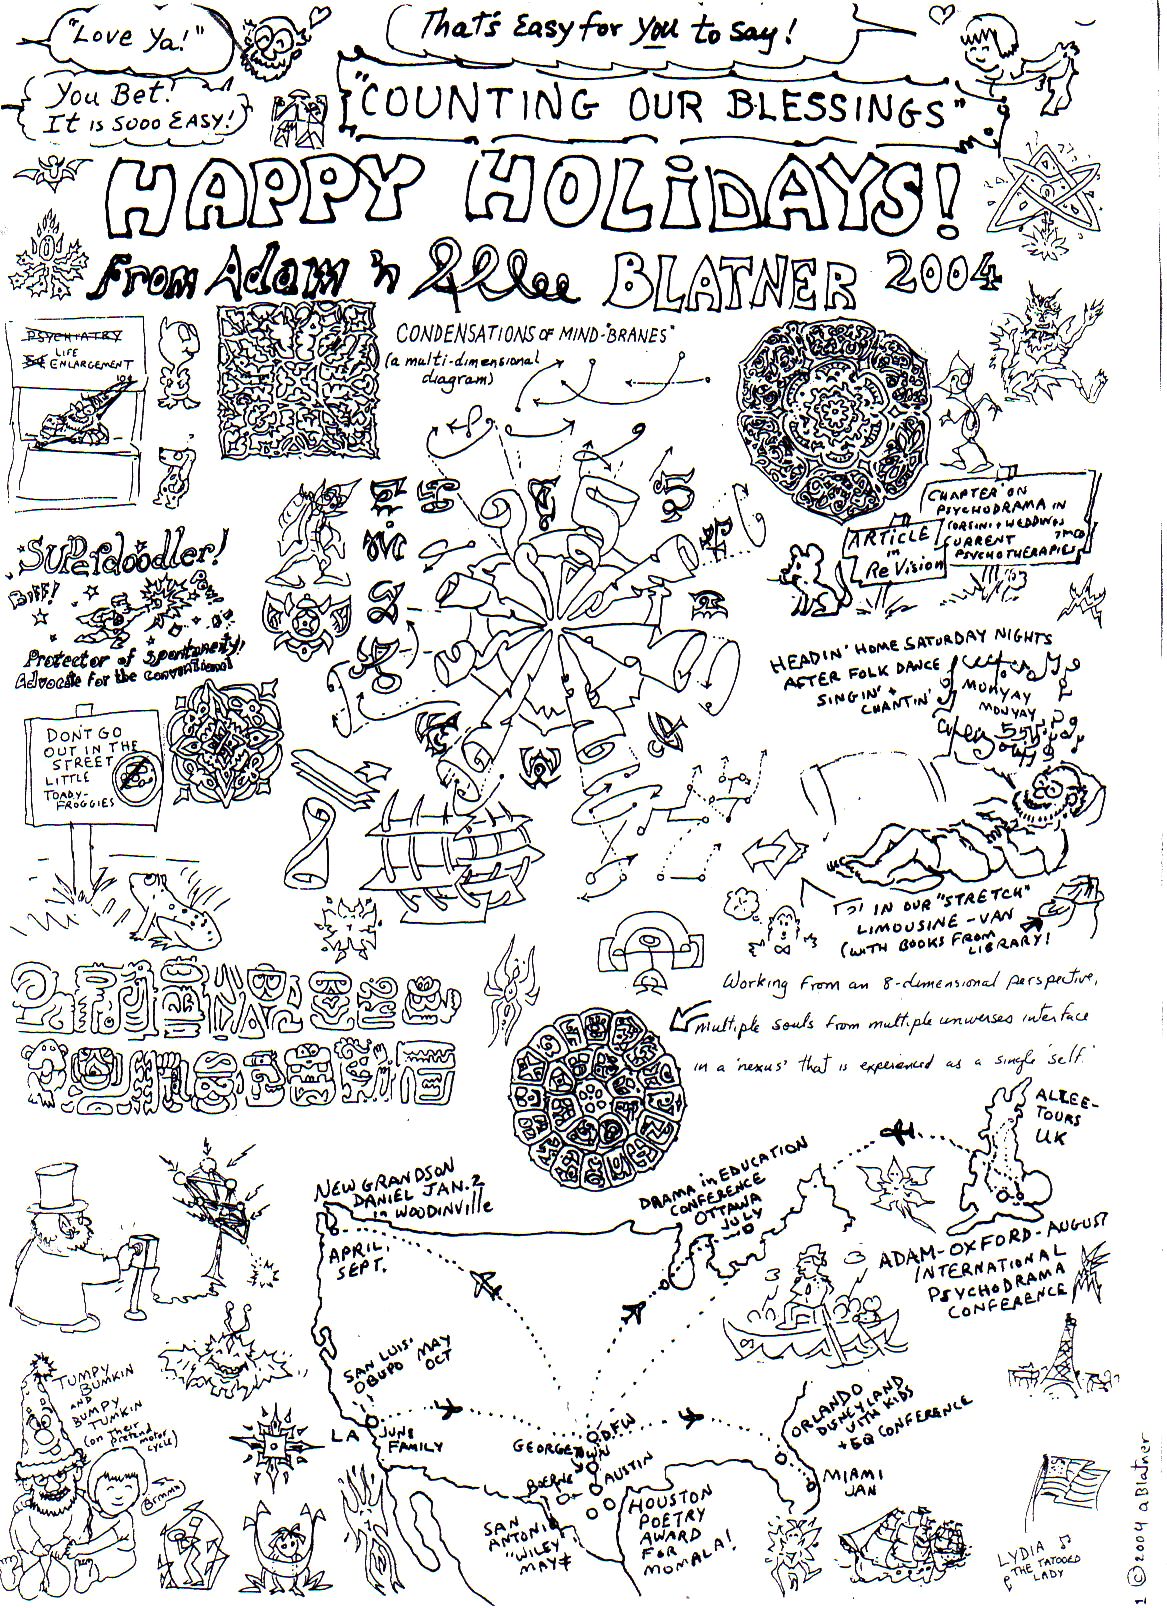 "Love Ya!"
That's Easy for You to say!
You Bet!
It is sooo EASY!
"COUNTING OUR BLESSINGS"
HAPPY HOLiDAYS!
From Adam 'n Allee BLATNER 2004
PSYCHIATRY
LIFE
ENLARGEMENT
CONDENSATIONS OF MIND-"BRANES"
(a multi-dimensional
diagram)
CHAPTER ON
PSYCHODRAMA IN
CORSINI + WEDDING'S
CURRENT
PSYCHOTHERAPIES
ARTICLE
in
ReVision
SUPerdoodler!
BIFF!
Protector of Spontaneity!
Advocate for the Conventional
HEADIN' HOME SATURDAY NIGHTS
AFTER FOLK DANCE
SINGIN' +
CHANTIN'
MUNYAY
MUNYAY
DON'T GO
OUT IN THE
STREET
LITTLE
TOADY-
FROGGIES
IN OUR "STRETCH"
LIMOUSINE-VAN
(WITH BOOKS FROM
LIBRARY!
Working from an 8-dimensional perspective,
multiple souls from multiple universes interface
in a 'nexus' that is experienced as a single 'self.'
ALLEE-
TOURS
UK
NEW GRANDSON
DANIEL JAN. 2
in WOODINVILLE
APRIL,
SEPT.
DRAMA in EDUCATION
CONFERENCE
OTTAWA
JULY
ADAM-OXFORD-AUGUST
INTERNATIONAL
PSYCHODRAMA
CONFERENCE
SAN LUIS
OBISPO MAY
OCT
LA
JUNE
FAMILY
TUMPY
BUMKIN
AND
BUMPY
TUMKIN
(on their
pretend motor
cycle)
Brmmm
DFW
GEORGETOWN
BOERNE
AUSTIN
SAN
ANTONIO
"WILEY"
MAY
HOUSTON
POETRY
AWARD
FOR
MOMALA!
ORLANDO
DISNEYLAND
WITH KIDS
+ EQ CONFERENCE
MIAMI
JAN
LYDIA
THE TATOOED
LADY
© 2004 aBlatner
1